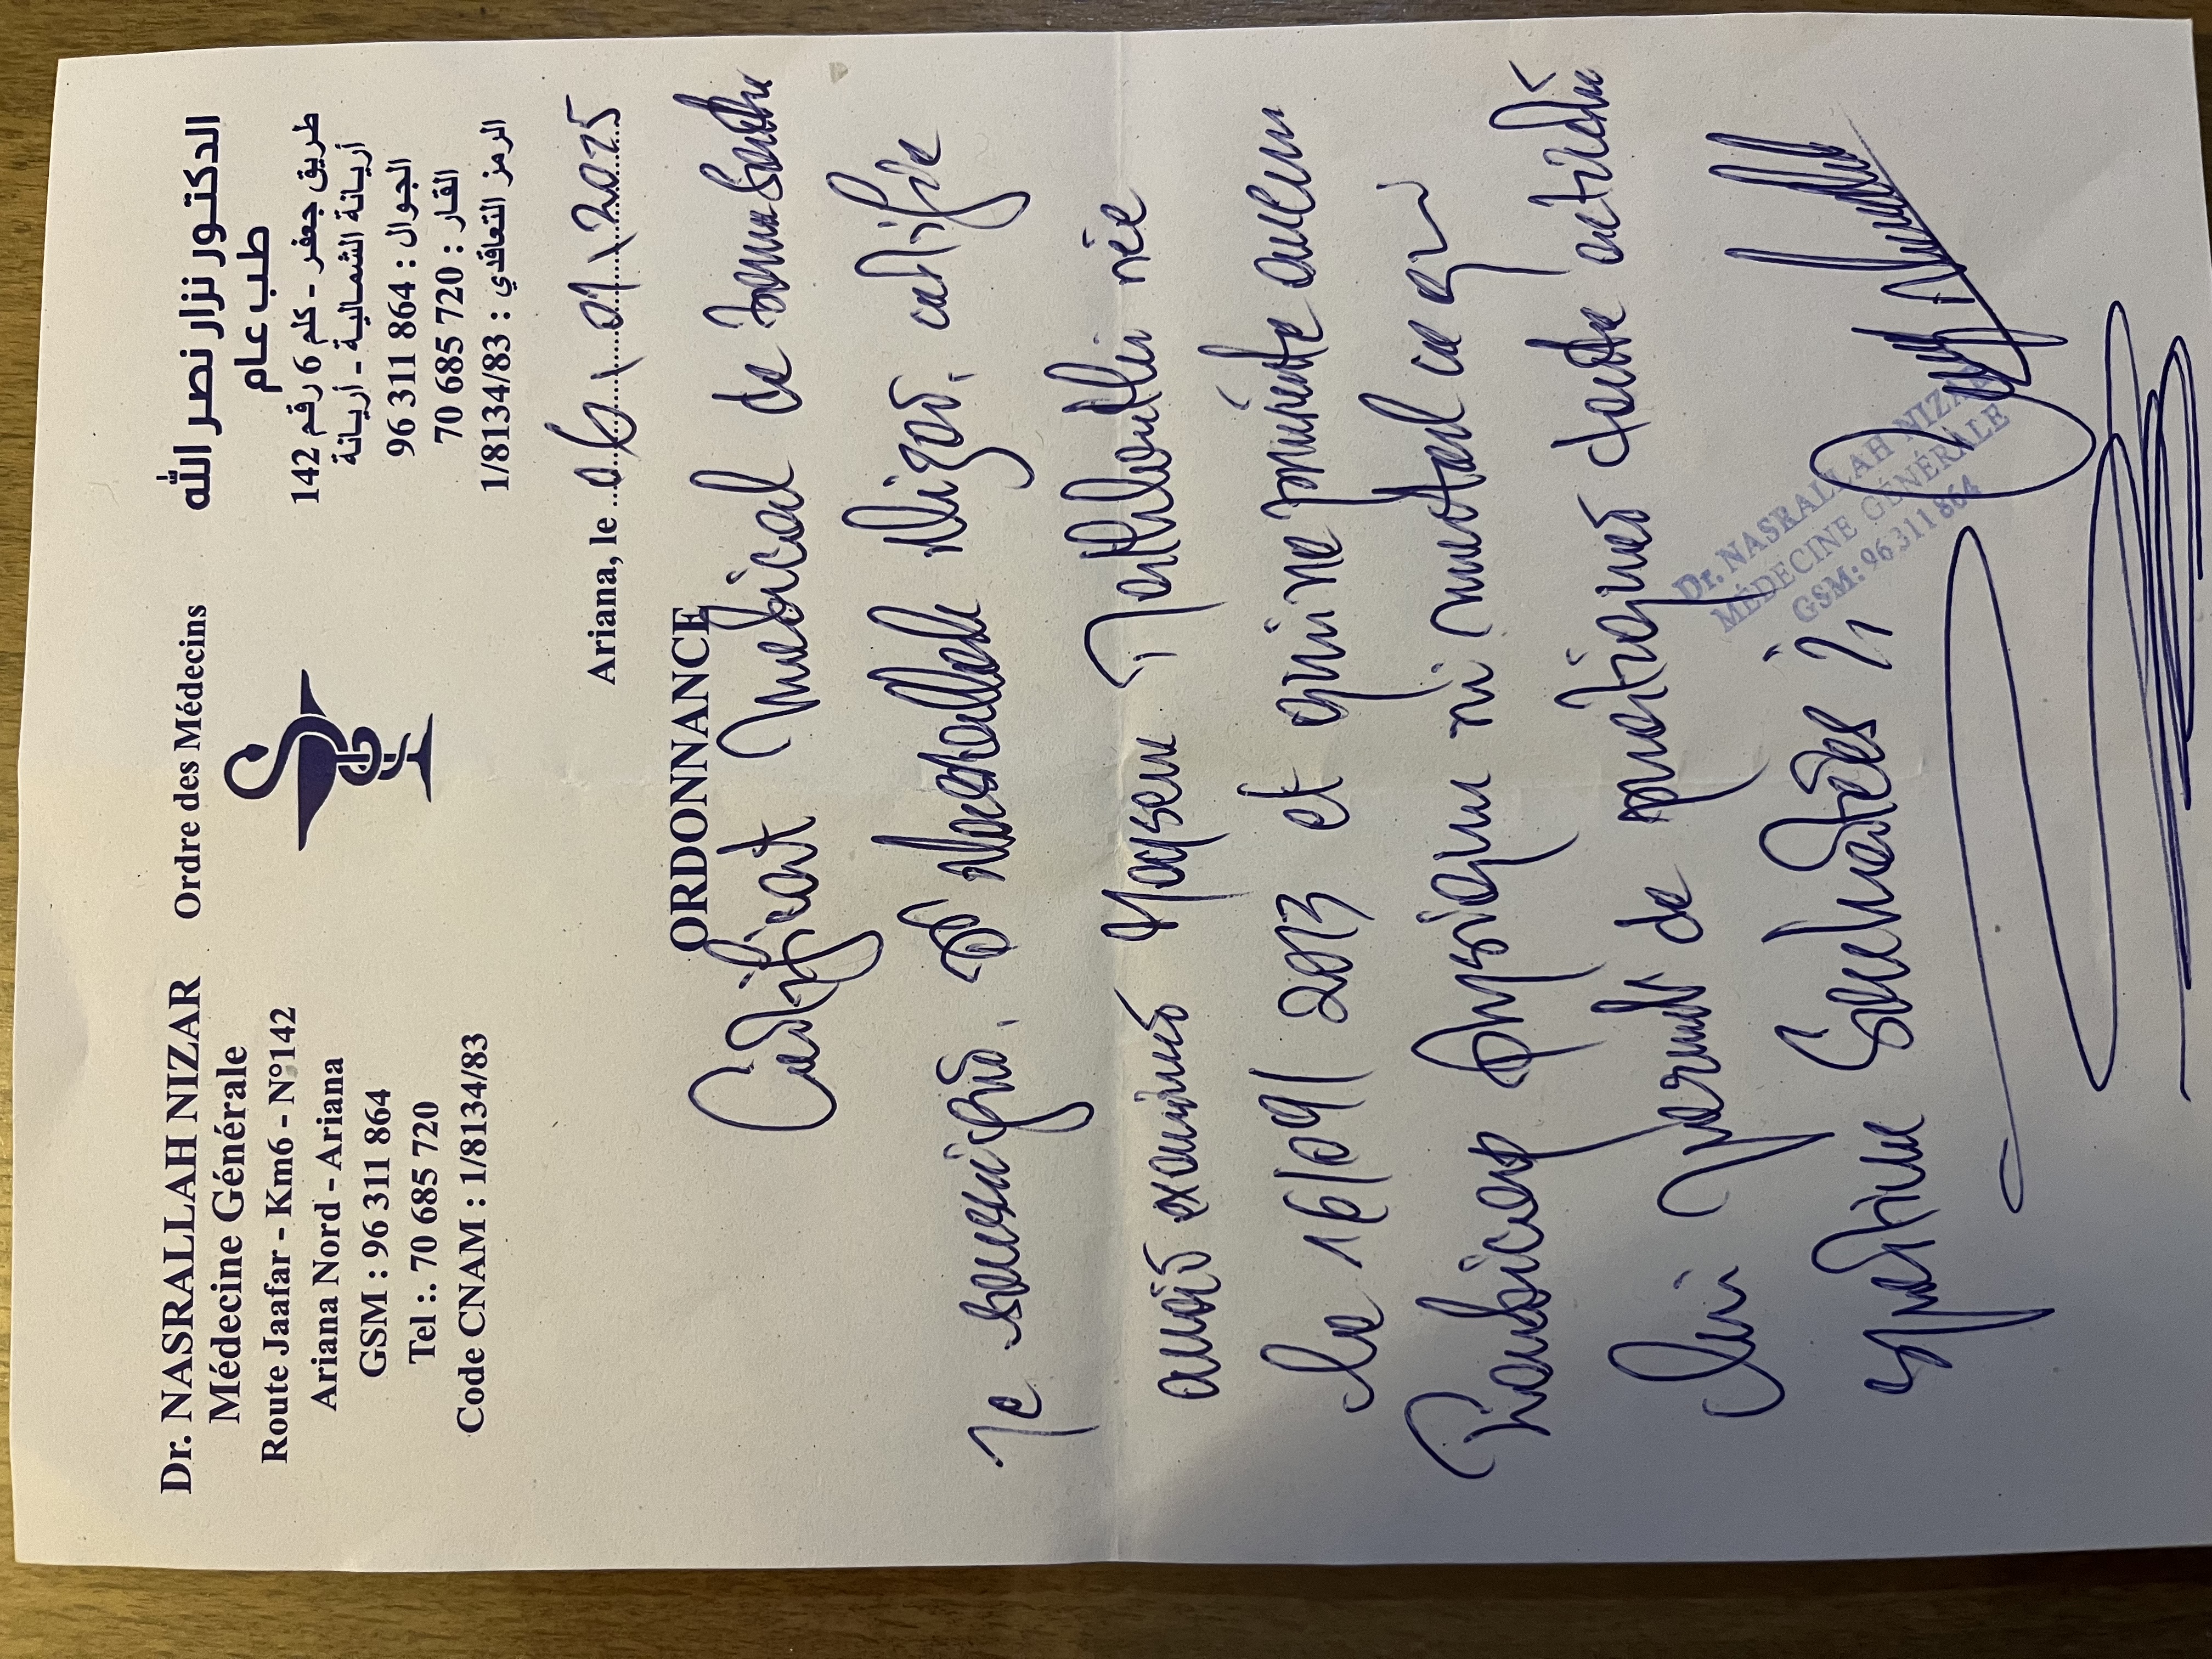 Dr. NASRALLAH NIZAR
Médecine Générale
Route Jaafar - Km6 - N°142
Ariana Nord - Ariana
GSM : 96 311 864
Tel :. 70 685 720
Code CNAM : 1/8134/83
Ordre des Médecins
الدكتور نزار نصر الله
طب عام
طريق جعفر - كلم 6 رقم 142
أريانة الشمالية - أريانة
الجوال : 864 311 96
القار : 720 685 70
الرمز التعاقدي : 1/8134/83
Ariana, le 06/01/2025
ORDONNANCE
Certificat Médical de bonne Santé
Je soussigné. Dr Nasrallah Nizar. certifie
avoir examiné née
le 16/09/2013 et qu'il ne présente aucun
Handicap Physique ni mental ce qui
lui permet de pratiquer toute activité
sportive Souhaitée
Dr. NASRALLAH NIZAR
MÉDECINE GÉNÉRALE
GSM: 96 311 864